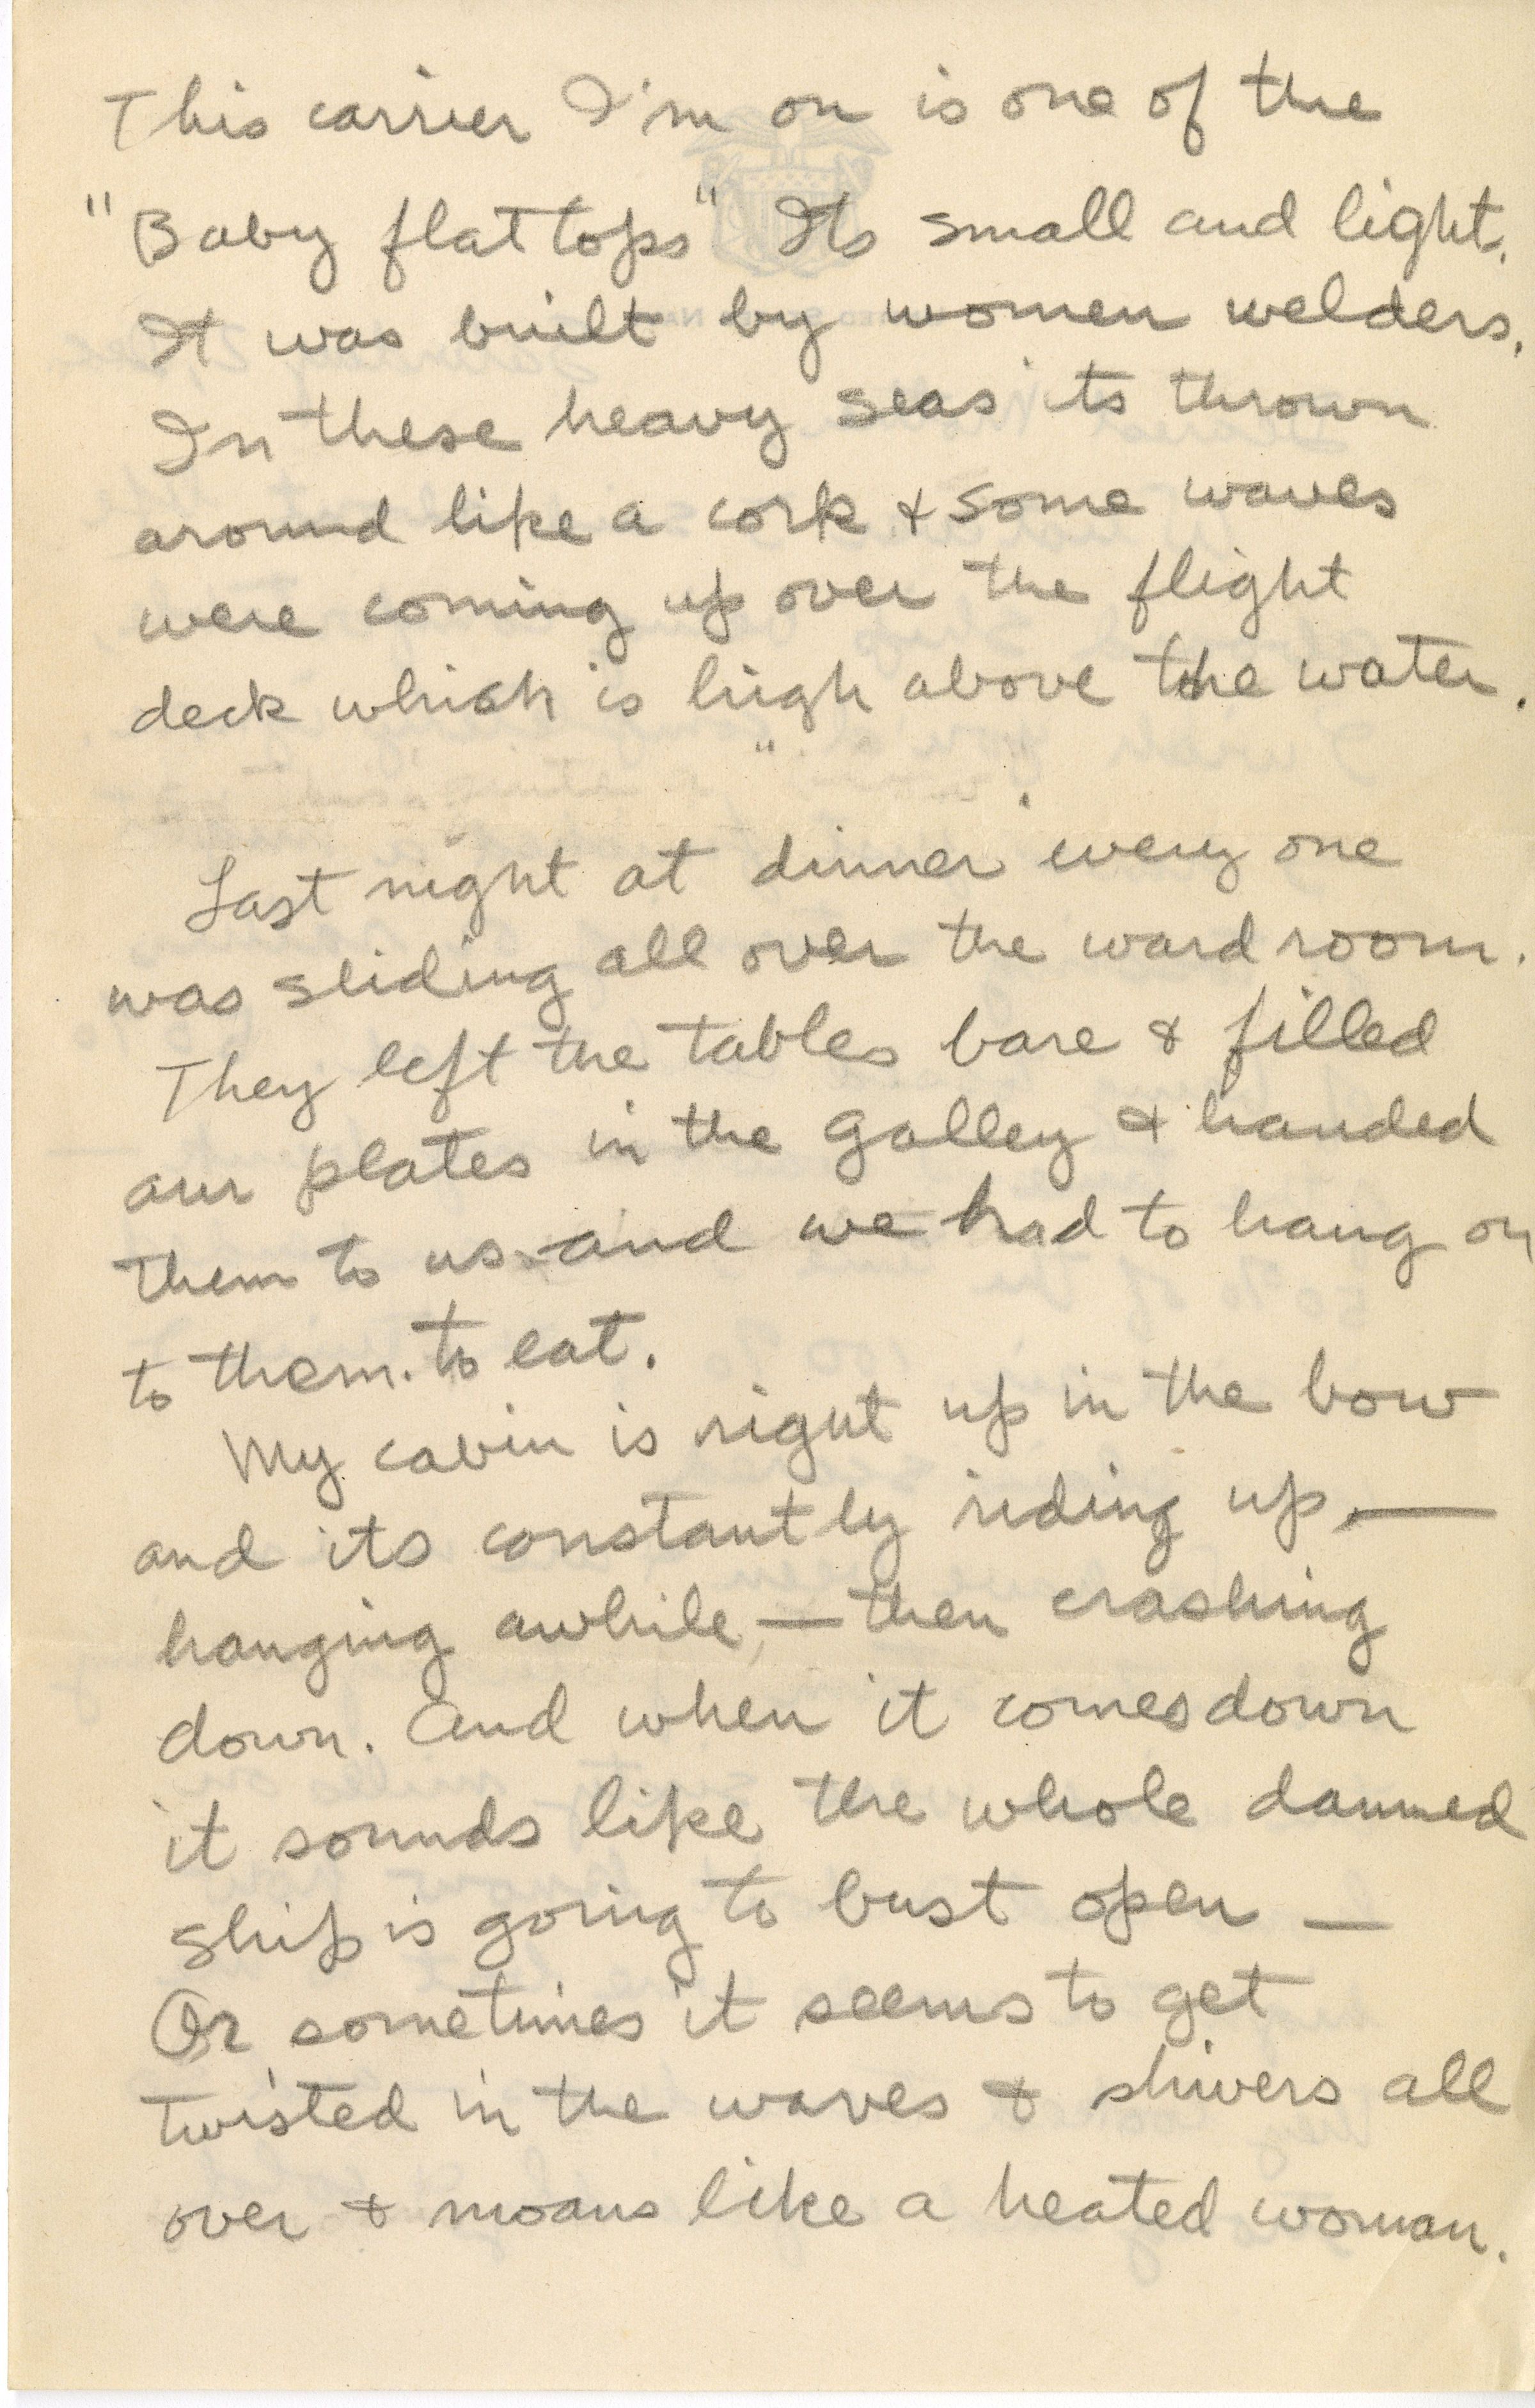 This carrier I'm on is one of the
"Baby flat tops" Its small and light.
It was built by women welders.
In these heavy seas its thrown
around like a cork & some waves
were coming up over the flight
deck which is high above the water.
"
Last night at dinner every one
was sliding all over the ward room.
They left the tables bare & filled
our plates in the galley & handed
them to us and we had to hang on
to them. to eat.
My cabin is right up in the bow
and its constantly riding up, —
hanging awhile, — then crashing
down. And when it comes down
it sounds like the whole damned
ship is going to bust open —
Or sometimes it seems to get
twisted in the waves & shivers all
over & moans like a heated woman.